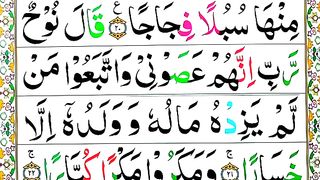 مِّنْهَا سُبُلًا فِجَاجًا ۝٢٠ ع قَالَ نُوْحٌ
رَّبِّ اِنَّهُمْ عَصَوْنِيْ وَاتَّبَعُوْا مَنْ
لَّمْ يَزِدْهُ مَالُهٗ وَوَلَدُهٗۤ اِلَّا
خَسَارًا ۝٢١ ج وَمَكَرُوْا مَكْرًا كُبَّارًا ۝٢٢ ج